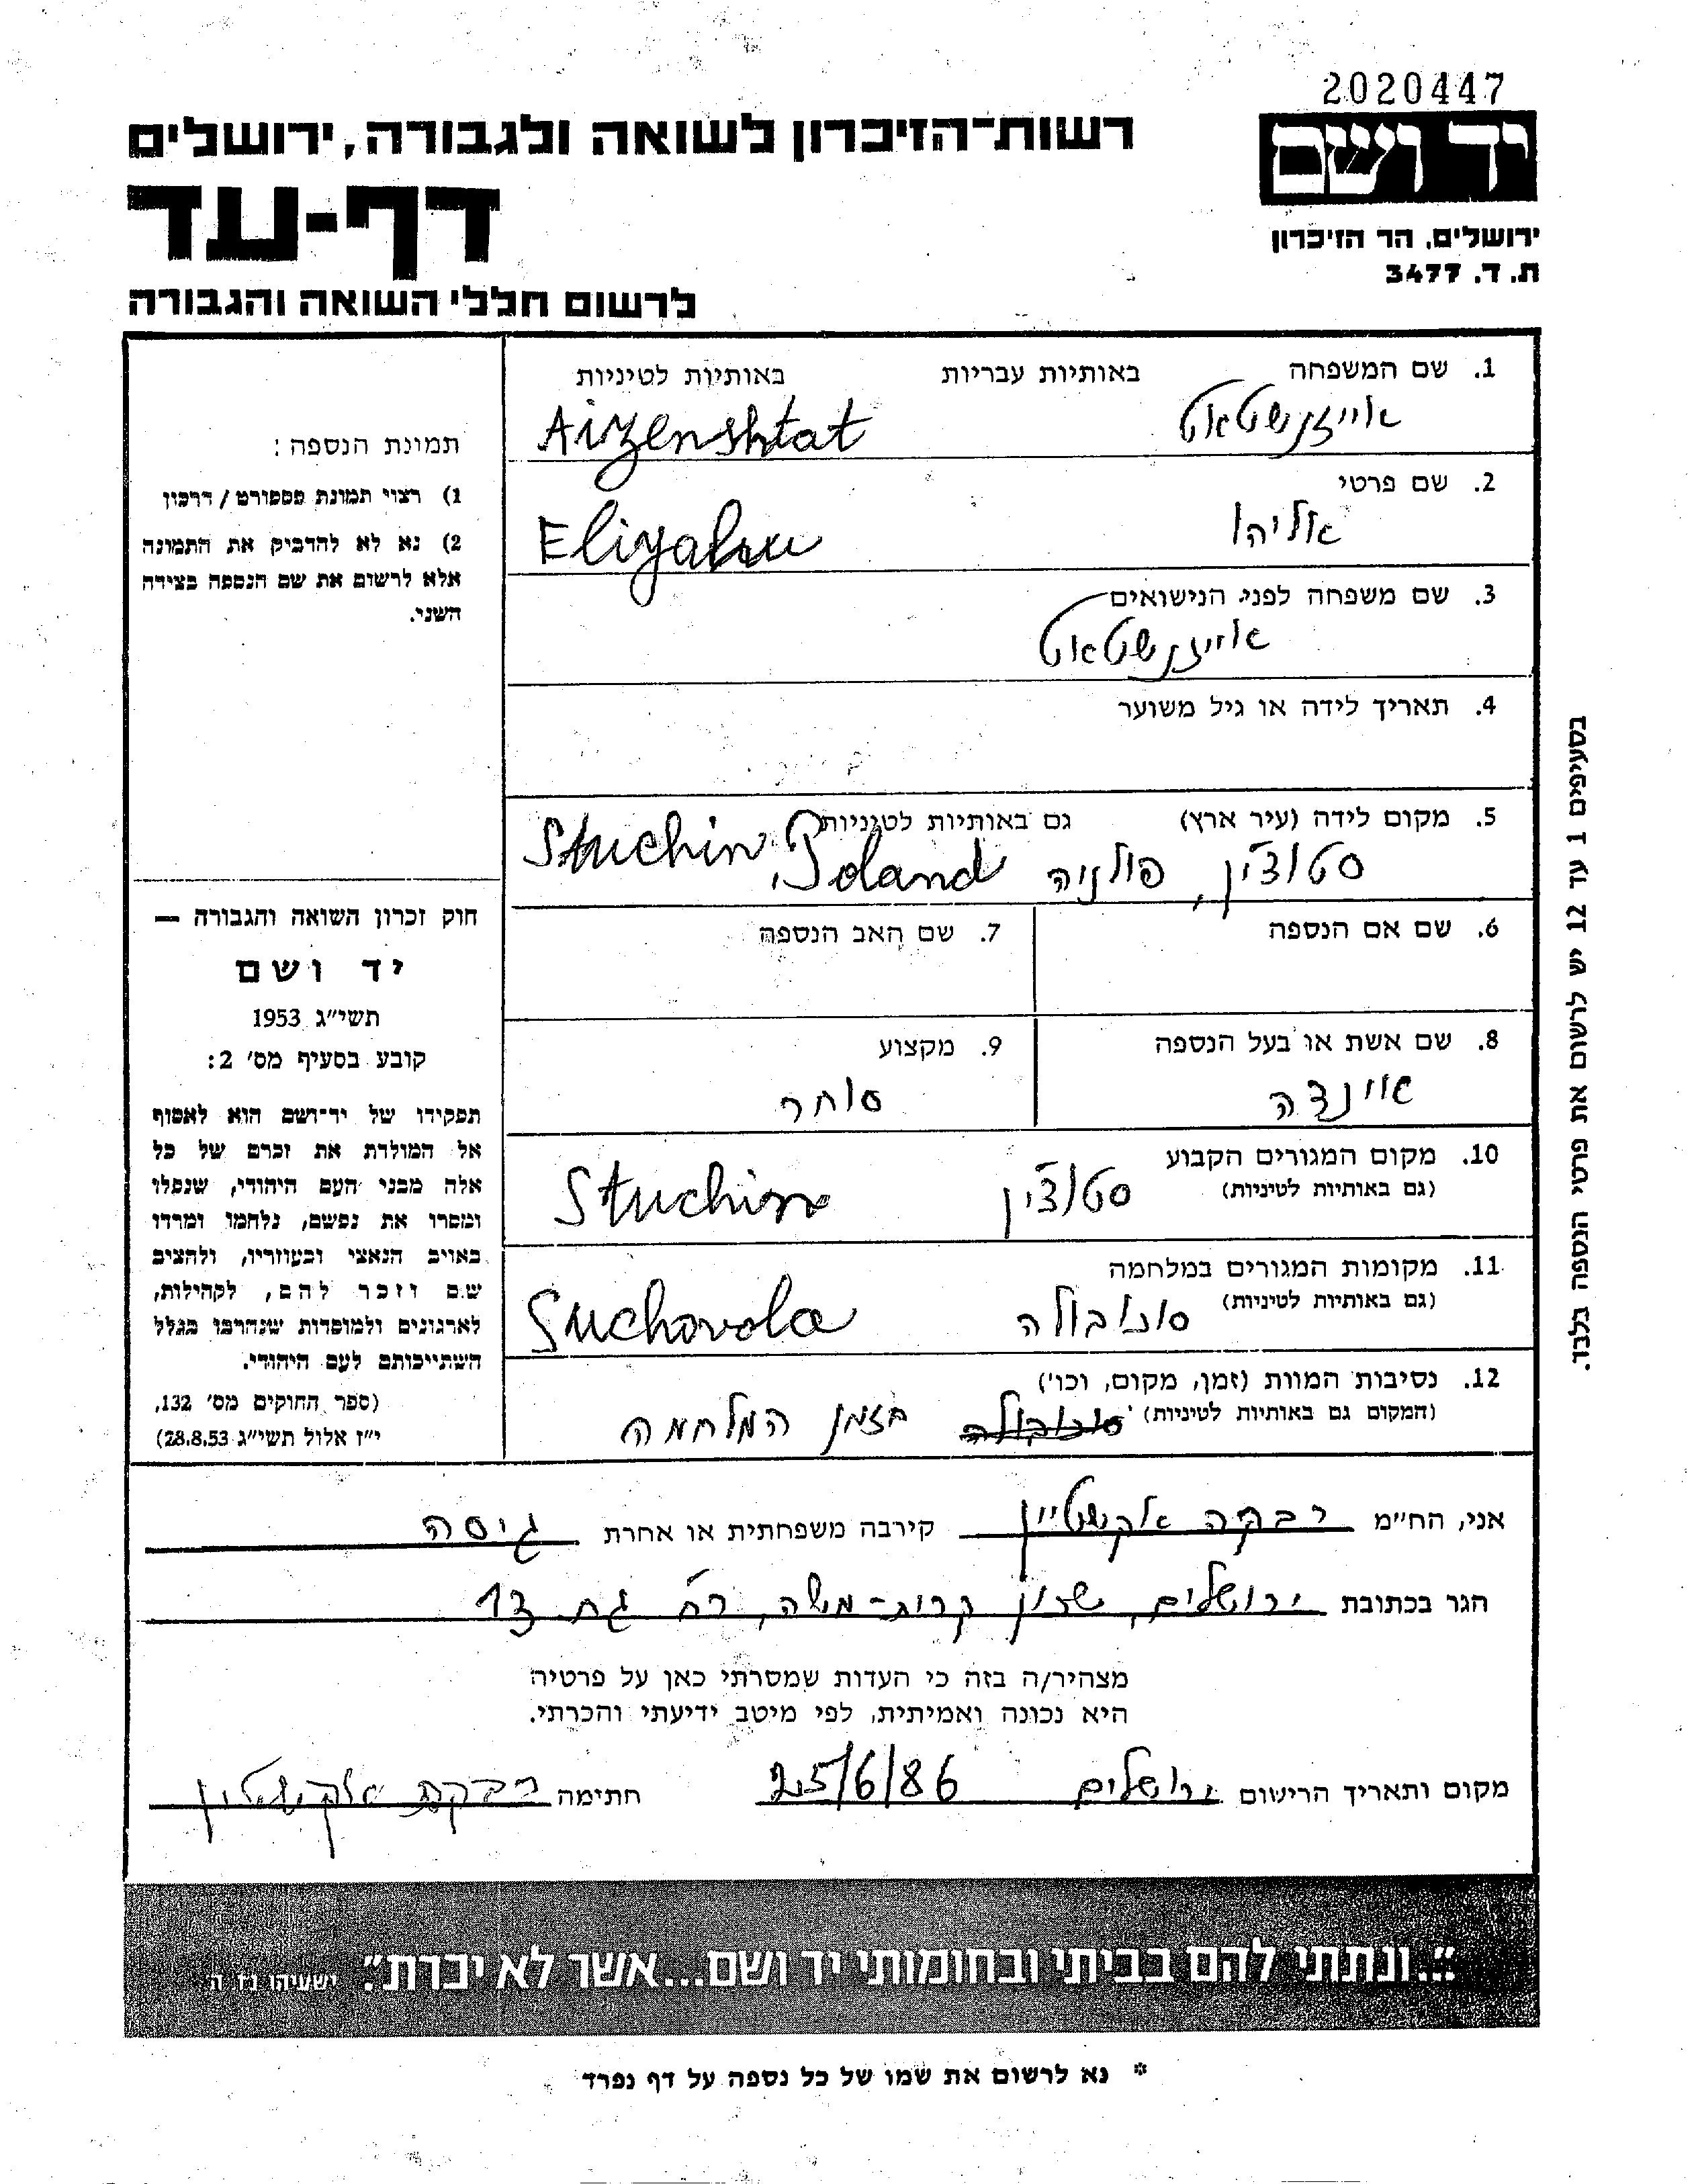 2020447
יד ושם
ירושלים, הר הזיכרון
ת. ד. 3477
רשות־הזיכרון לשואה ולגבורה, ירושלים
דף-עד
לרשום חללי השואה והגבורה
1. שם המשפחה באותיות עבריות באותיות לטיניות
אייזנשטאט Aizenshtat
2. שם פרטי
אליהו Eliyahu
3. שם משפחה לפני הנישואים
אייזנשטאט
4. תאריך לידה או גיל משוער
5. מקום לידה (עיר ארץ) גם באותיות לטיניות
סטוצ'ין, פולניה Stuchin, Poland
6. שם אם הנספה 7. שם האב הנספה
8. שם אשת או בעל הנספה 9. מקצוע
איינדה סוחר
10. מקום המגורים הקבוע
(גם באותיות לטיניות) סטוצ'ין Stuchin
11. מקומות המגורים במלחמה
(גם באותיות לטיניות) סוכובולה Suchovola
12. נסיבות המוות (זמן, מקום, וכו')
(המקום גם באותיות לטיניות) סוכובולה בזמן המלחמה
תמונת הנספה:
1) רצוי תמונת פספורט / דרכון
2) נא לא להדביק את התמונה
אלא לרשום את שם הנספה בצידה
השני.
חוק זכרון השואה והגבורה —
יד ושם
תשי״ג 1953
קובע בסעיף מס׳ 2:
תפקידו של יד־ושם הוא לאסוף
אל המולדת את זכרם של כל
אלה מבני העם היהודי, שנפלו
ומסרו את נפשם, נלחמו ומרדו
באויב הנאצי ובעוזריו, ולהציב
שם וזכר להם, לקהילות,
לארגונים ולמוסדות שנהרבו בגלל
השתייכותם לעם היהודי.
(ספר החוקים מס׳ 132,
י״ז אלול תשי״ג 28.8.53)
בסעיפים 1 עד 12 יש לרשום את פרטי הנספה בלבד.
אני, הח״מ רבקה אלקשטיין קירבה משפחתית או אחרת גיסה
הגר בכתובת ירושלים, שכון קרית-משה, רח' 13
מצהיר/ה בזה כי העדות שמסרתי כאן על פרטיה
היא נכונה ואמיתית, לפי מיטב ידיעתי והכרתי.
מקום ותאריך הרישום ירושלים 25/6/86 חתימה רבקה אלקשטיין
״...ונתתי להם בביתי ובחומותי יד ושם...אשר לא יכרת״. ישעיהו נו ה
* נא לרשום את שמו של כל נספה על דף נפרד